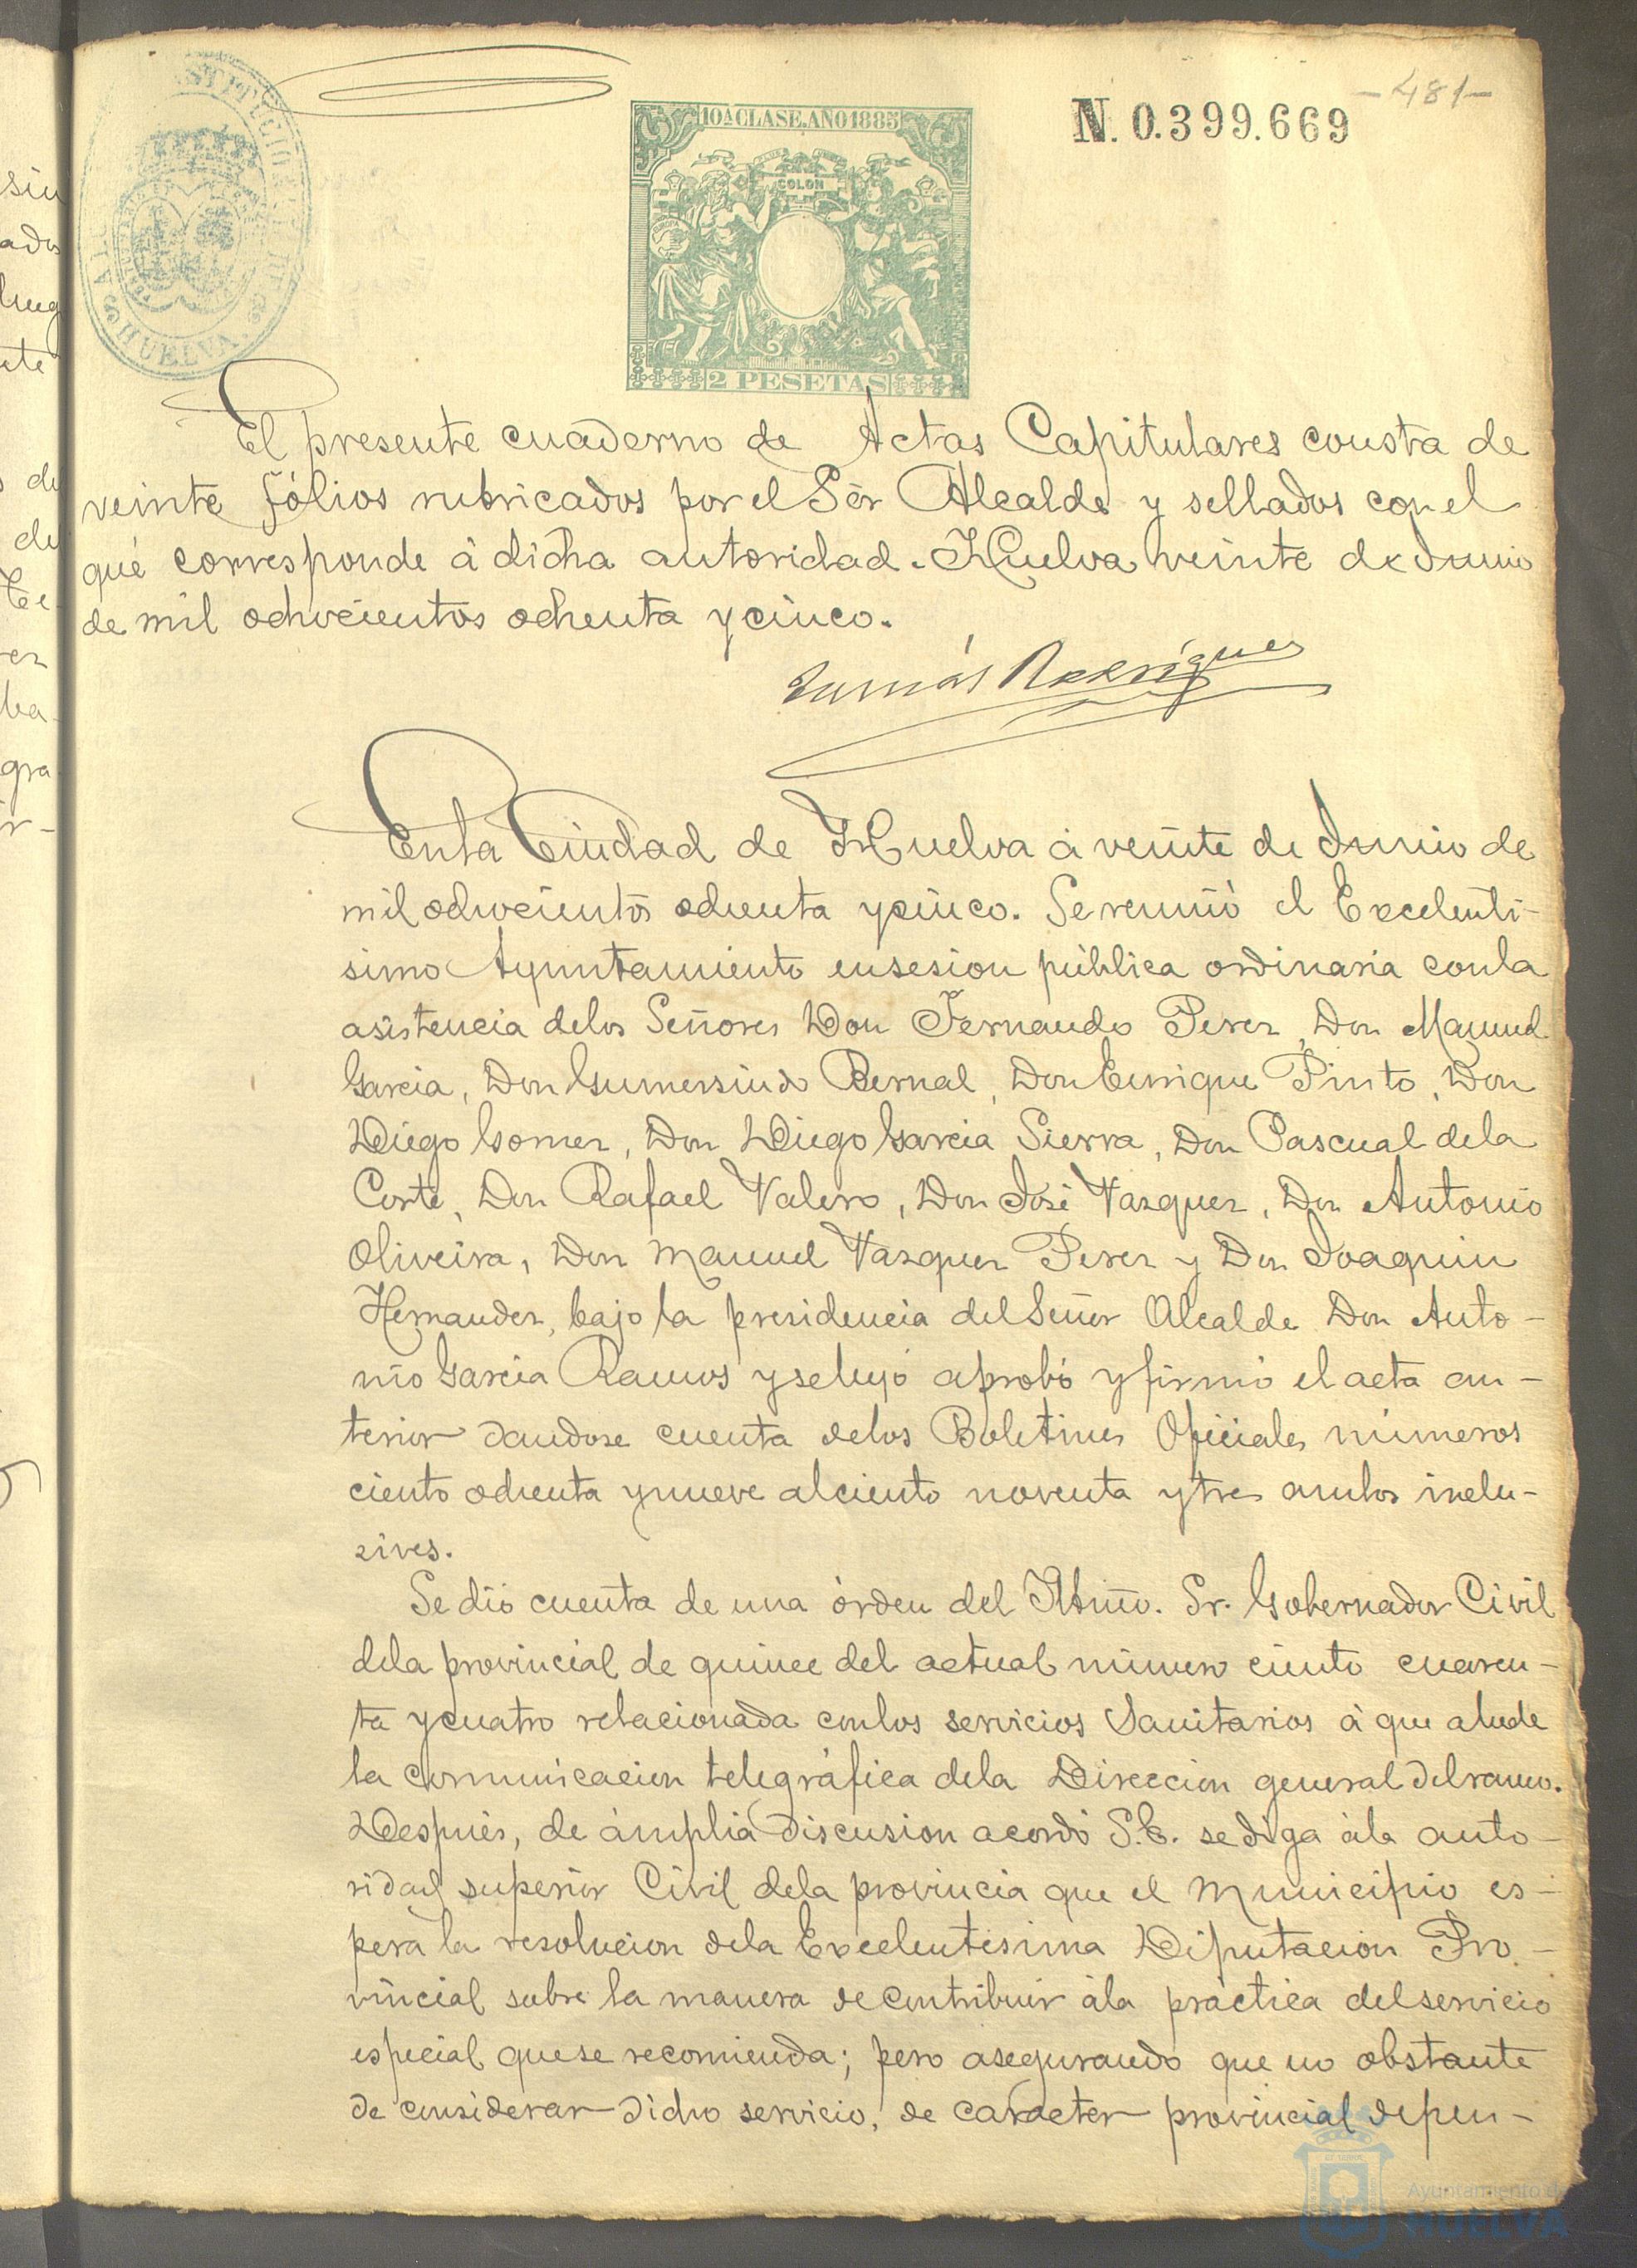 -481-
10ª CLASE. AÑO 1885
N. 0.399.669
COLON
2 PESETAS
HUELVA
El presente cuaderno de Actas Capitulares consta de
veinte fólios rubricados por el Sõr Alcalde y sellados con el
que corresponde á dicha autoridad. Huelva veinte de Junio
de mil ochocientos ochenta y cinco.
Tomás Rodriguez
En la Ciudad de Huelva á veinte de Junio de
mil ochocientos ochenta y cinco. Se reunió el Excelentí-
simo Ayuntamiento en sesion pública ordinaria con la
asistencia de los Señores Don Fernando Perez, Don Manuel
Garcia, Don Gumersindo Bernal, Don Enrique Pinto, Don
Diego Gomez, Don Diego Garcia Sierra, Don Pascual de la
Corte, Don Rafael Valero, Don José Vazquez, Don Antonio
Oliveira, Don Manuel Vazquez Perez y Don Joaquin
Hernandez, bajo la presidencia del Señor Alcalde Don Anto-
nio Garcia Ramos y se leyó aprobó y firmó el acta an-
terior dandose cuenta de los Boletines Oficiales números
ciento ochenta y nueve al ciento noventa y tres ambos inclu-
sives.
Se dió cuenta de una órden del Iltmo. Sr. Gobernador Civil
de la provincial de quince del actual número ciento cuaren-
ta y cuatro relacionada con los servicios Sanitarios á que alude
la comunicacion telegráfica de la Direccion general del ramo.
Después, de ámplia discusion acordó S.E. se diga á la auto-
ridad superior Civil de la provincia que el Municipio es-
pera la resolucion de la Excelentisima Diputacion Pro-
vincial sobre la manera de contribuir á la práctica del servicio
especial que se recomienda; pero asegurando que no obstante
de considerar dicho servicio, de caracter provincial depen-
Ayuntamiento de
HUELVA